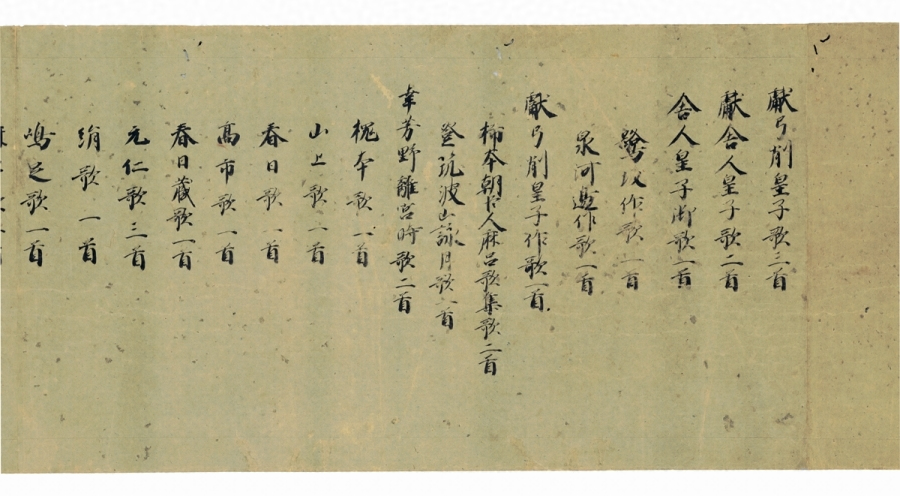 獻弓削皇子歌三首
獻舎人皇子歌二首
舎人皇子御歌一首
鷺坂作歌一首
泉河邊作歌一首
獻弓削皇子作歌一首
柿本朝臣人麻呂歌集歌二首
登筑波山詠月歌一首
幸芳野離宮時歌二首
槐本歌一首
山上歌一首
春日歌一首
高市歌一首
春日蔵歌一首
元仁歌三首
絹歌一首
嶋足歌一首